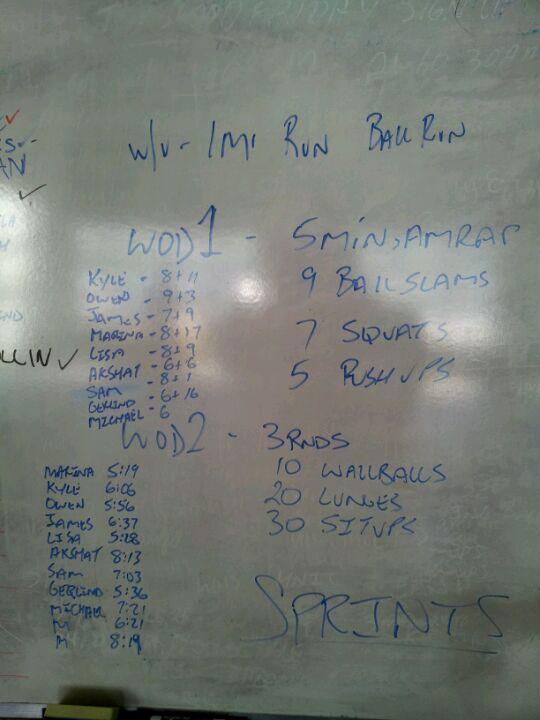 W/U - 1 Mi RUN BALL RUN
WOD 1 - 5 MIN AMRAP
9 BALL SLAMS
7 SQUATS
5 PUSHUPS
KYLE - 8+11
OWEN - 9+3
JAMES - 7+9
MARINA - 8+17
LISA - 8+9
AKSHAT - 6+6
SAM - 8+1
GERLIND - 6+16
MICHAEL - 6
WOD 2 - 3 RNDS
10 WALLBALLS
20 LUNGES
30 SITUPS
MARINA 5:19
KYLE 6:06
OWEN 5:56
JAMES 6:37
LISA 5:28
AKSHAT 8:13
SAM 7:03
GERLIND 5:36
MICHAEL 7:21
M 6:21
M 8:19
SPRINTS